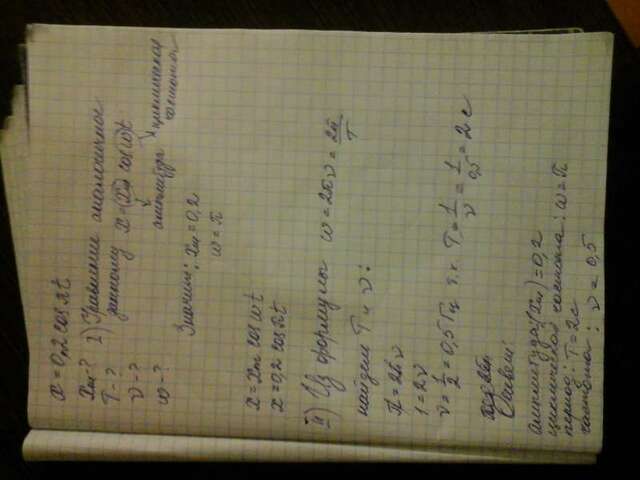 x = 0,2 cos πt
xm - ? 1) Уравнение аналогичное
T - ? данному x = xm cos(ω)t
ν - ? амплитуда циклическая частота
ω - ? Значит: xm = 0,2
ω = π
x = xm cos ωt
x = 0,2 cos πt
II) Из формулы ω = 2πν = 2π/T
найдём T и ν:
π = 2πν
1 = 2ν
ν = 1/2 = 0,5 Гц т.к. T = 1/ν = 1/0,5 = 2 с
Ответ:
Амплитуда (xm) = 0,2
циклическая частота: ω = π
период: T = 2с
частота: ν = 0,5